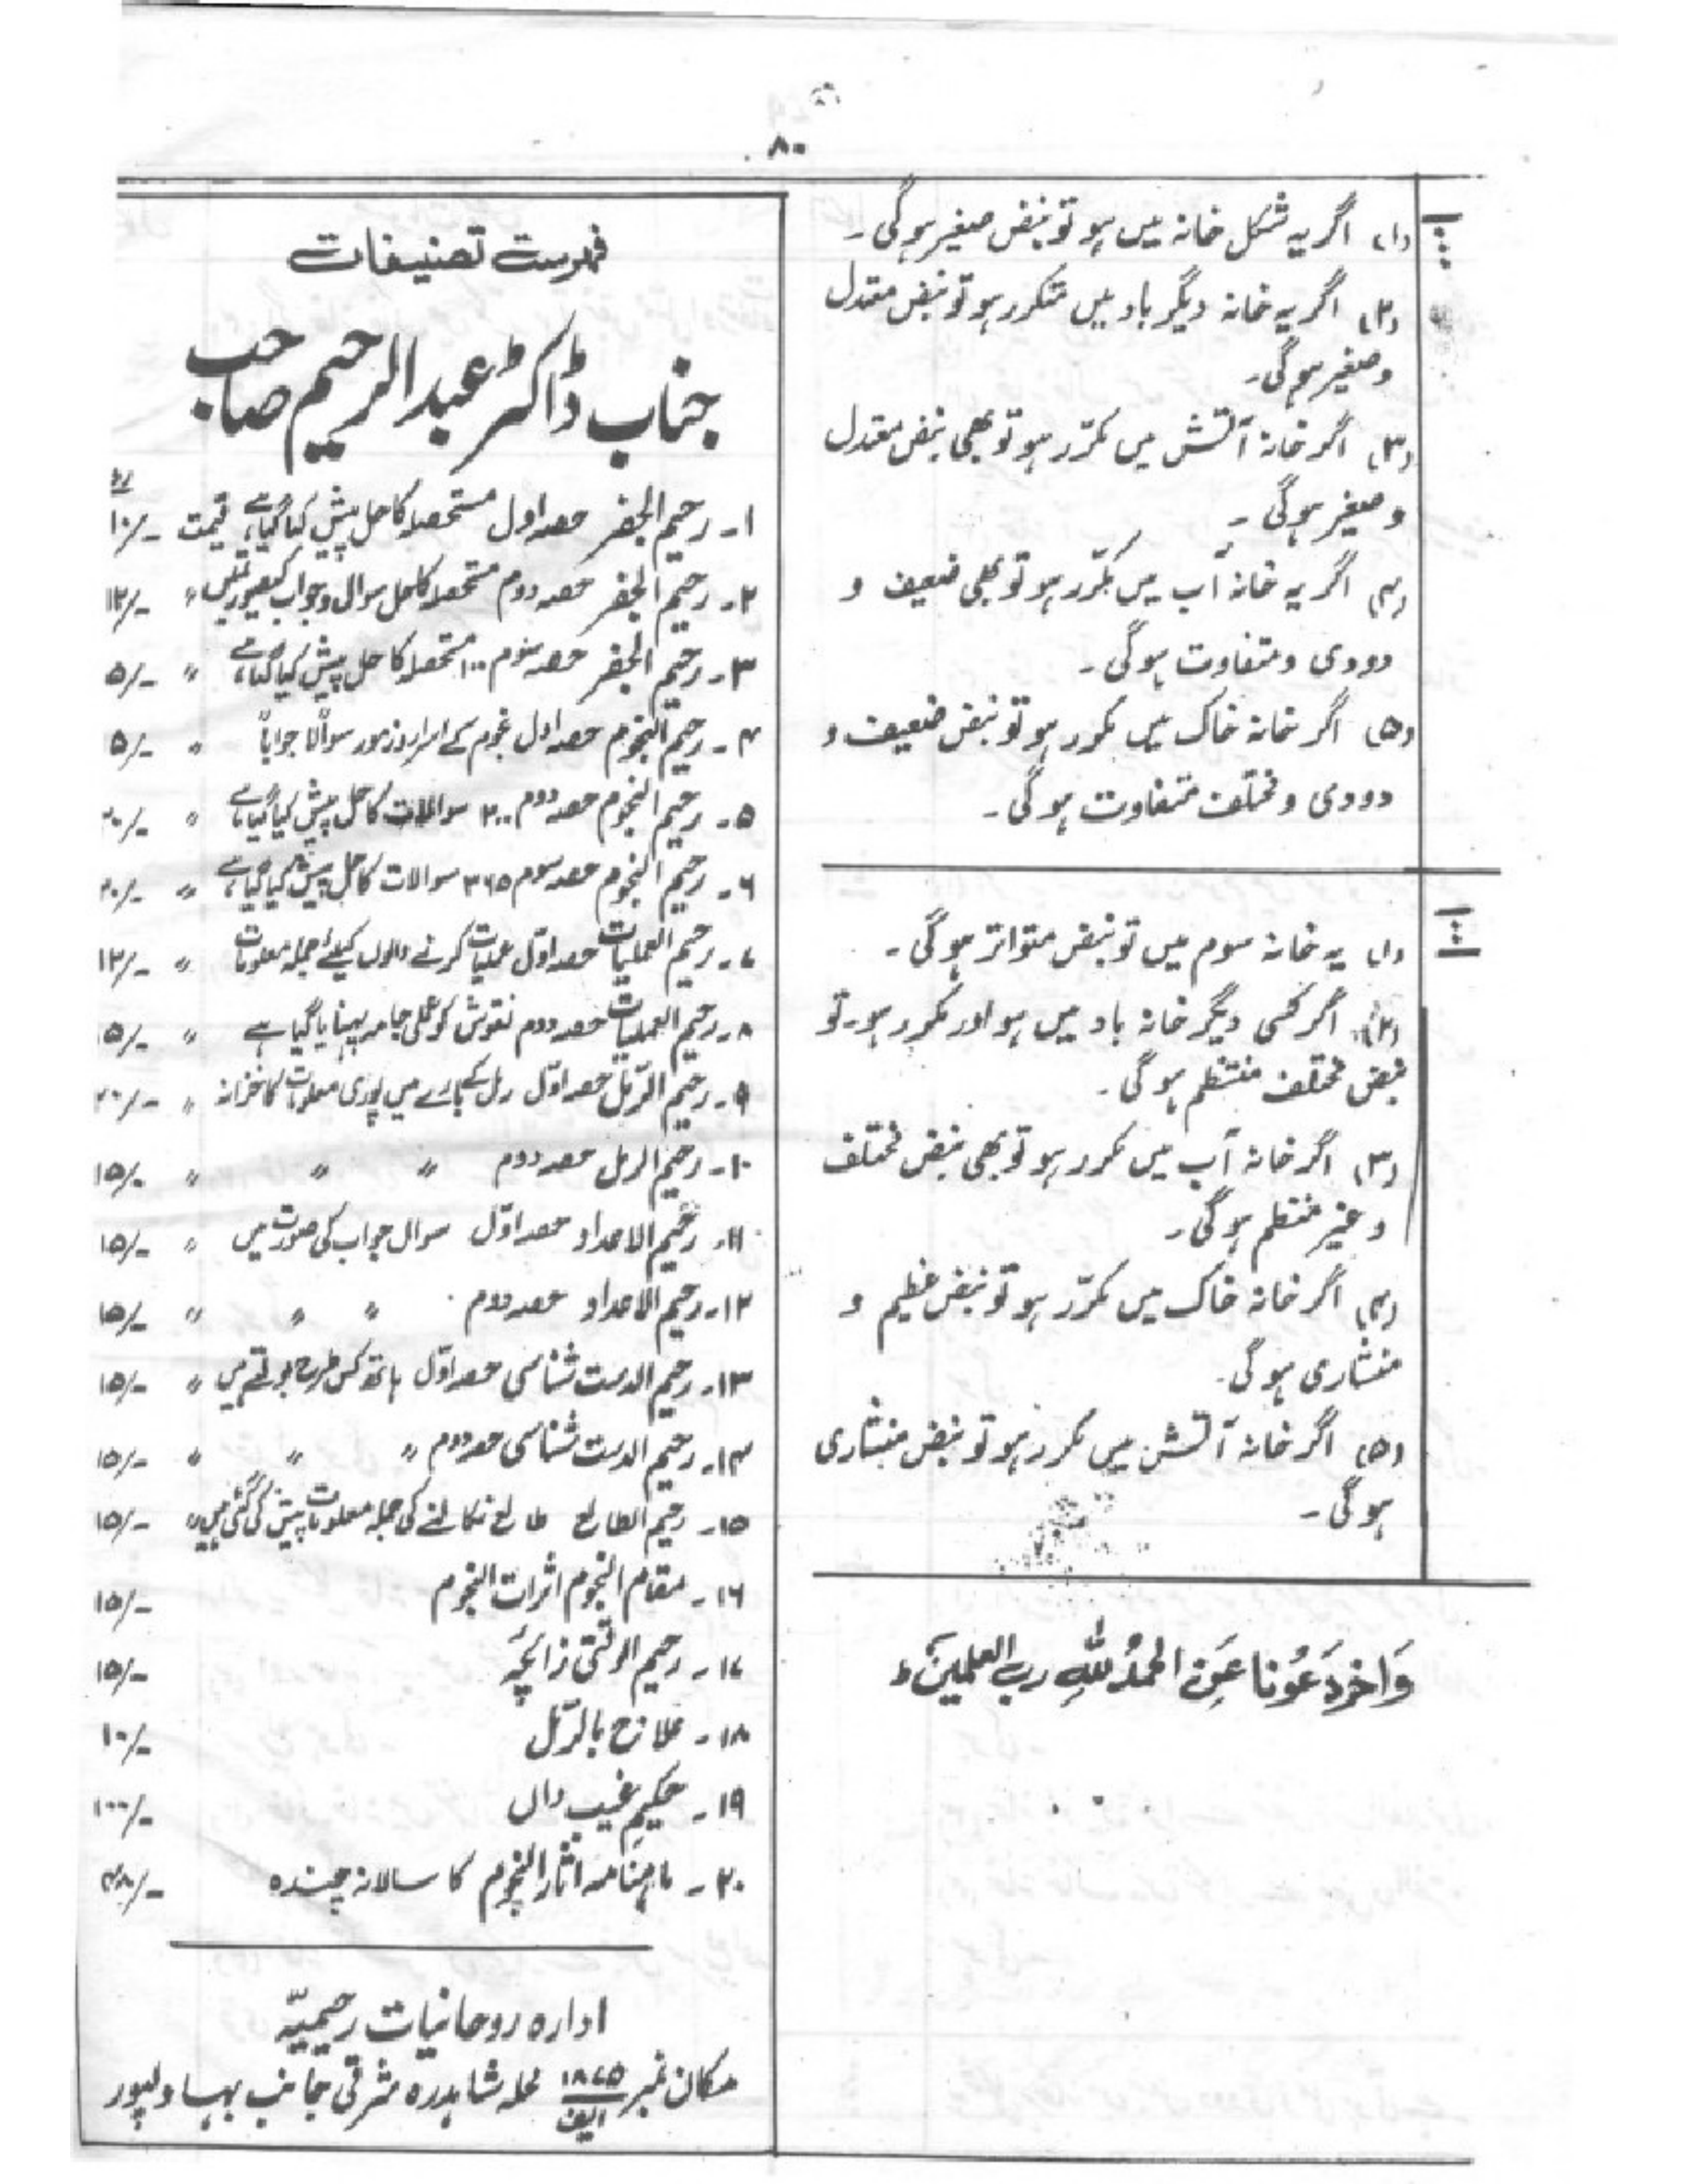 ۸۰
(۱) اگر یہ شکل خانہ میں ہو تو نبض صغیر ہوگی۔
(۲) اگر یہ خانہ دیگر باد میں متکرر ہو تو نبض معتدل
و صغیر ہوگی۔
(۳) اگر خانہ آتش میں مکرّر ہو تو بھی نبض معتدل
و صغیر ہوگی۔
(۴) اگر یہ خانہ آب میں مکرّر ہو تو بھی ضعیف و
دودی و متفاوت ہوگی۔
(۵) اگر خانہ خاک میں مکرر ہو تو نبض ضعیف و
دودی و مختلف متفاوت ہوگی۔
(۱) یہ خانہ سوم میں تو نبض متواتر ہوگی۔
(۲) اگر کسی دیگر خانہ باد میں ہو اور مکرر ہو۔ تو
نبض مختلف منتظم ہوگی۔
(۳) اگر خانہ آب میں مکرر ہو تو بھی نبض مختلف
و غیر منتظم ہوگی۔
(۴) اگر خانہ خاک میں مکرّر ہو تو نبض عظیم و
منشاری ہوگی۔
(۵) اگر خانہ آتش میں مکرر ہو تو نبض منشاری
ہوگی۔
وَاٰخِرُدَعْوٰنا عَنِ الحمدُ للّٰہِ رب العلمینَ ط
فہرست تصنیفات
جناب ڈاکٹر عبدالرحیم صاحب
۱۔ رحیم الجفر حصہ اول مستحصلہ کا حل پیش کیا گیا ہے قیمت ۱۰/-
۲۔ رحیم الجفر حصہ دوم مستحصلہ کا حل سوال و جواب کیصورتمیں " ۱۲/-
۳۔ رحیم الجفر حصہ سوم ۱۰۰ مستحصلہ کا حل پیش کیا گیا ہے " ۵/-
۴۔ رحیم النجوم حصہ اول نجوم کے اسرار و رموز سوالاً جواباً " ۵/-
۵۔ رحیم النجوم حصہ دوم ۲۰۰ سوالات کا حل پیش کیا گیا ہے " ۲۰/-
۶۔ رحیم النجوم حصہ سوم ۳۶۵ سوالات کا حل پیش کیا گیا ہے " ۲۰/-
۷۔ رحیم العملیات حصہ اوّل عملیات کرنے والوں کیلئے جملہ معلومات " ۱۲/-
۸۔ رحیم العملیات حصہ دوم نقوش کو عملی جامہ پہنایا گیا ہے " ۱۵/-
۹۔ رحیم الرّمل حصہ اوّل رمل کے بارے میں پوری معلومات کا خزانہ " ۲۰/-
۱۰۔ رحیم الرمل حصہ دوم " " " ۱۵/-
۱۱۔ رحیم الاعداد حصہ اوّل سوال جواب کی صورت میں " ۱۵/-
۱۲۔ رحیم الاعداد حصہ دوم " " " ۱۵/-
۱۳۔ رحیم الدست شناسی حصہ اوّل ہاتھ کس طرح بولتے ہیں " ۱۵/-
۱۴۔ رحیم الدست شناسی حصہ دوم " " " ۱۵/-
۱۵۔ رحیم الطالع طالع نکالنے کی جملہ معلومات پیش کی گئی ہیں " ۱۵/-
۱۶۔ مقام النجوم اثرات النجوم ۱۵/-
۱۷۔ رحیم الوقتی زائچہ ۱۵/-
۱۸۔ علاج بالرّمل ۱۰/-
۱۹۔ حکیم غیب دال ۱۰۰/-
۲۰۔ ماہنامہ آثار النجوم کا سالانہ چندہ ۴۸/-
ادارہ روحانیات رحیمیّہ
مکان نمبر ۱۸۷۵/الف محلہ شاہدرہ مشرقی جانب بہاولپور